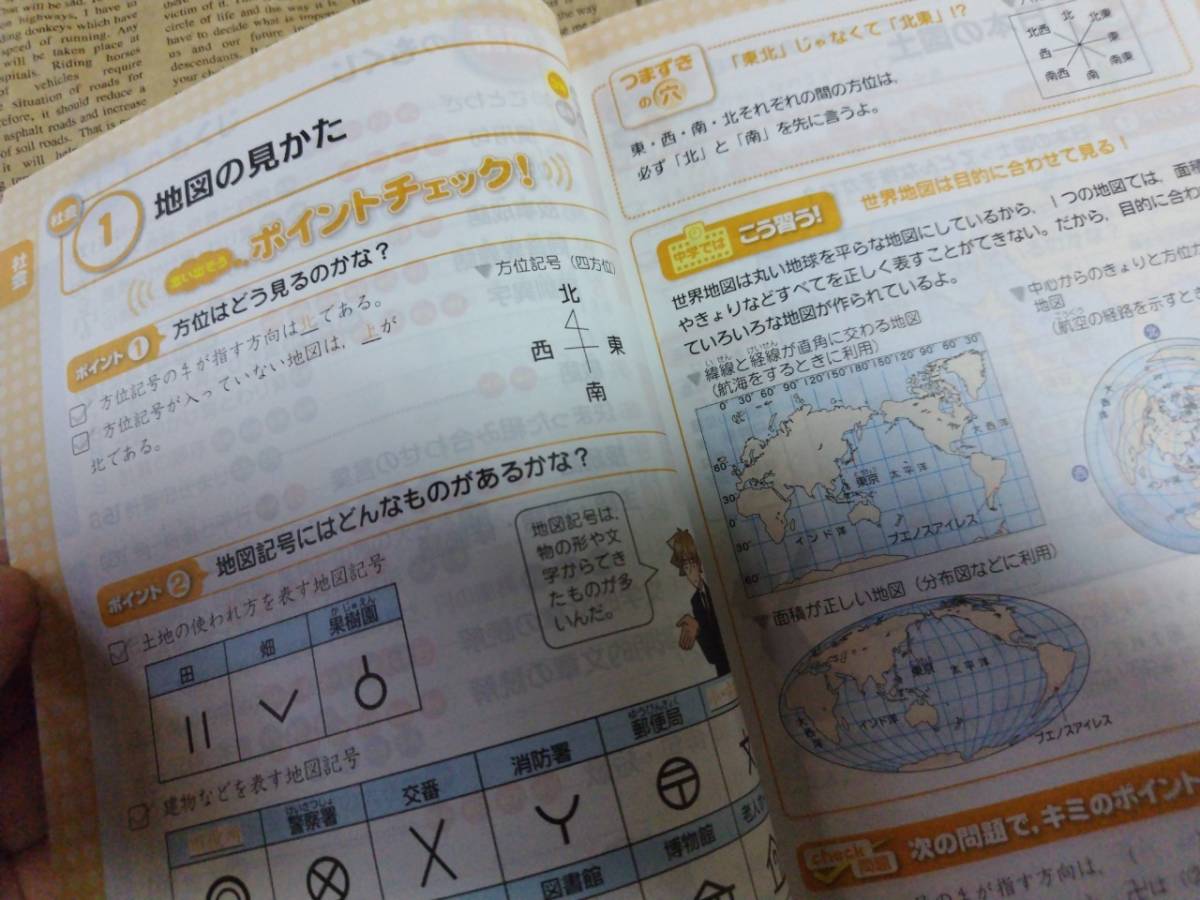 will be sad. For
highways, I have to
ding donkeys which have
speed of running. Any
will be taken place at
spitals. Riding horses
vehicles require
situation of roads for
efore, it should reduce a
asphalt roads and increase
of soil roads. That is
it will help
victim of it. That
circle of life and the way it is
have to decide what is import
us and our future
descendants.
社会
社会
1
地図の見かた
思い出そう
ポイントチェック!
ポイント1
方位はどう見るのかな?
方位記号の4が指す方向は北である。
方位記号が入っていない地図は,上が
北である。
▼方位記号(四方位)
北
西
東
南
ポイント2
地図記号にはどんなものがあるかな?
土地の使われ方を表す地図記号
田
畑
果樹園
かじゅえん
地図記号は,
物の形や文
字からでき
たものが多
いんだ。
建物などを表す地図記号
警察署
けいさつしょ
交番
消防署
郵便局
ゆうびんきょく
図書館
博物館
老人
つまずき
の穴
「東北」じゃなくて「北東」!?
東・西・南・北それぞれの間の方位は,
必ず「北」と「南」を先に言うよ。
北西
北
北東
西
東
南西
南
南東
中学では
こう習う!
世界地図は目的に合わせて見る!
世界地図は丸い地球を平らな地図にしているから,1つの地図では,面積
やきょりなどすべてを正しく表すことができない。だから,目的に合わ
ていろいろな地図が作られているよ。
▼緯線と経線が直角に交わる地図
いせん
けいせん
(航海をするときに利用)
0° 30 60 90 120 150 180 150 120 90 60 30
60
30
0
30
60
東京
太平洋
大西洋
インド洋
ブエノスアイレス
▼中心からのきょりと方位が
地図
(航空の経路を示すとき
こうくう
▼面積が正しい地図(分布図などに利用)
東京
太平洋
インド洋
ブエノスアイレス
check
問題
次の問題で,キミのポイント
の4が指す方向は,(